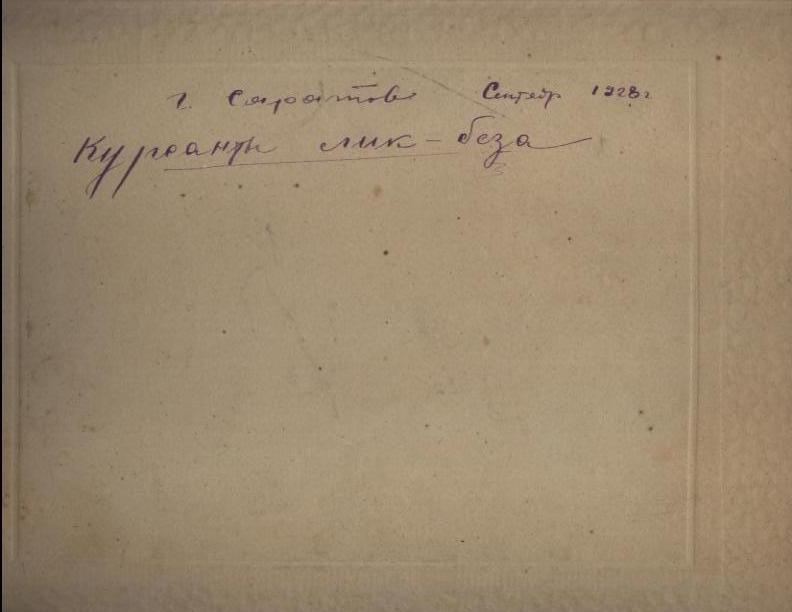 г. Саратов Сентябр 1928г
Курсанты лик-беза